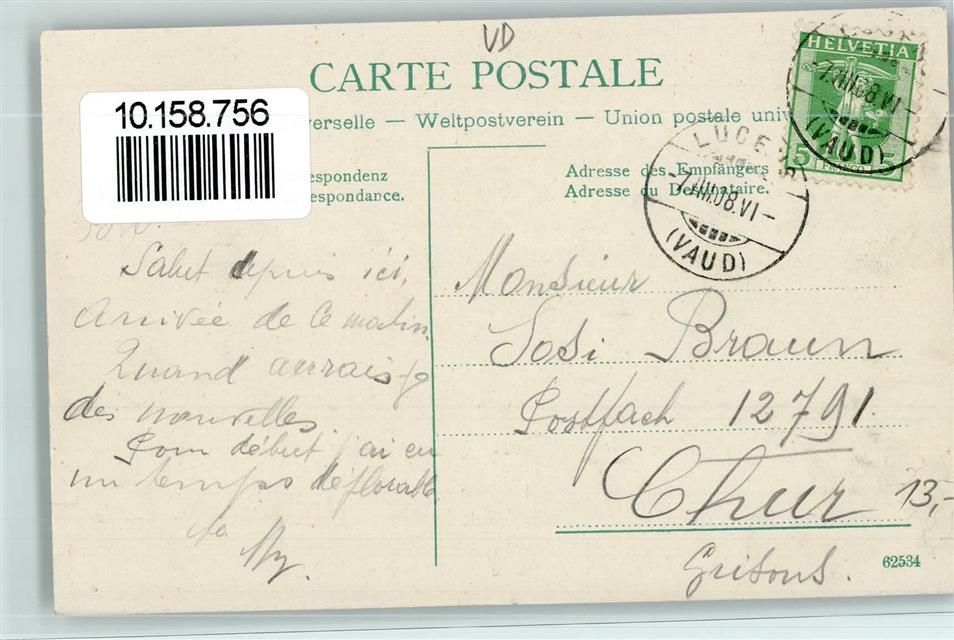 VD
CARTE POSTALE
10.158.756
verselle — Weltpostverein — Union postale univ
HELVETIA
5 5
FRANCO
-7.III.08.VI
(VAUD)
LUCE
-7.III.08.VI-
(VAUD)
spondenz
espondance.
Adresse des Empfängers
Adresse du Destinataire.
Salut depuis ici,
Arrivée de ce matin.
Quand aurais-je
des nouvelles.
Pour début j'ai eu
un temps déflorable
Monsieur
Sosi Braun
Postfach 12791.
Chur
13,-
Grisons.
62534